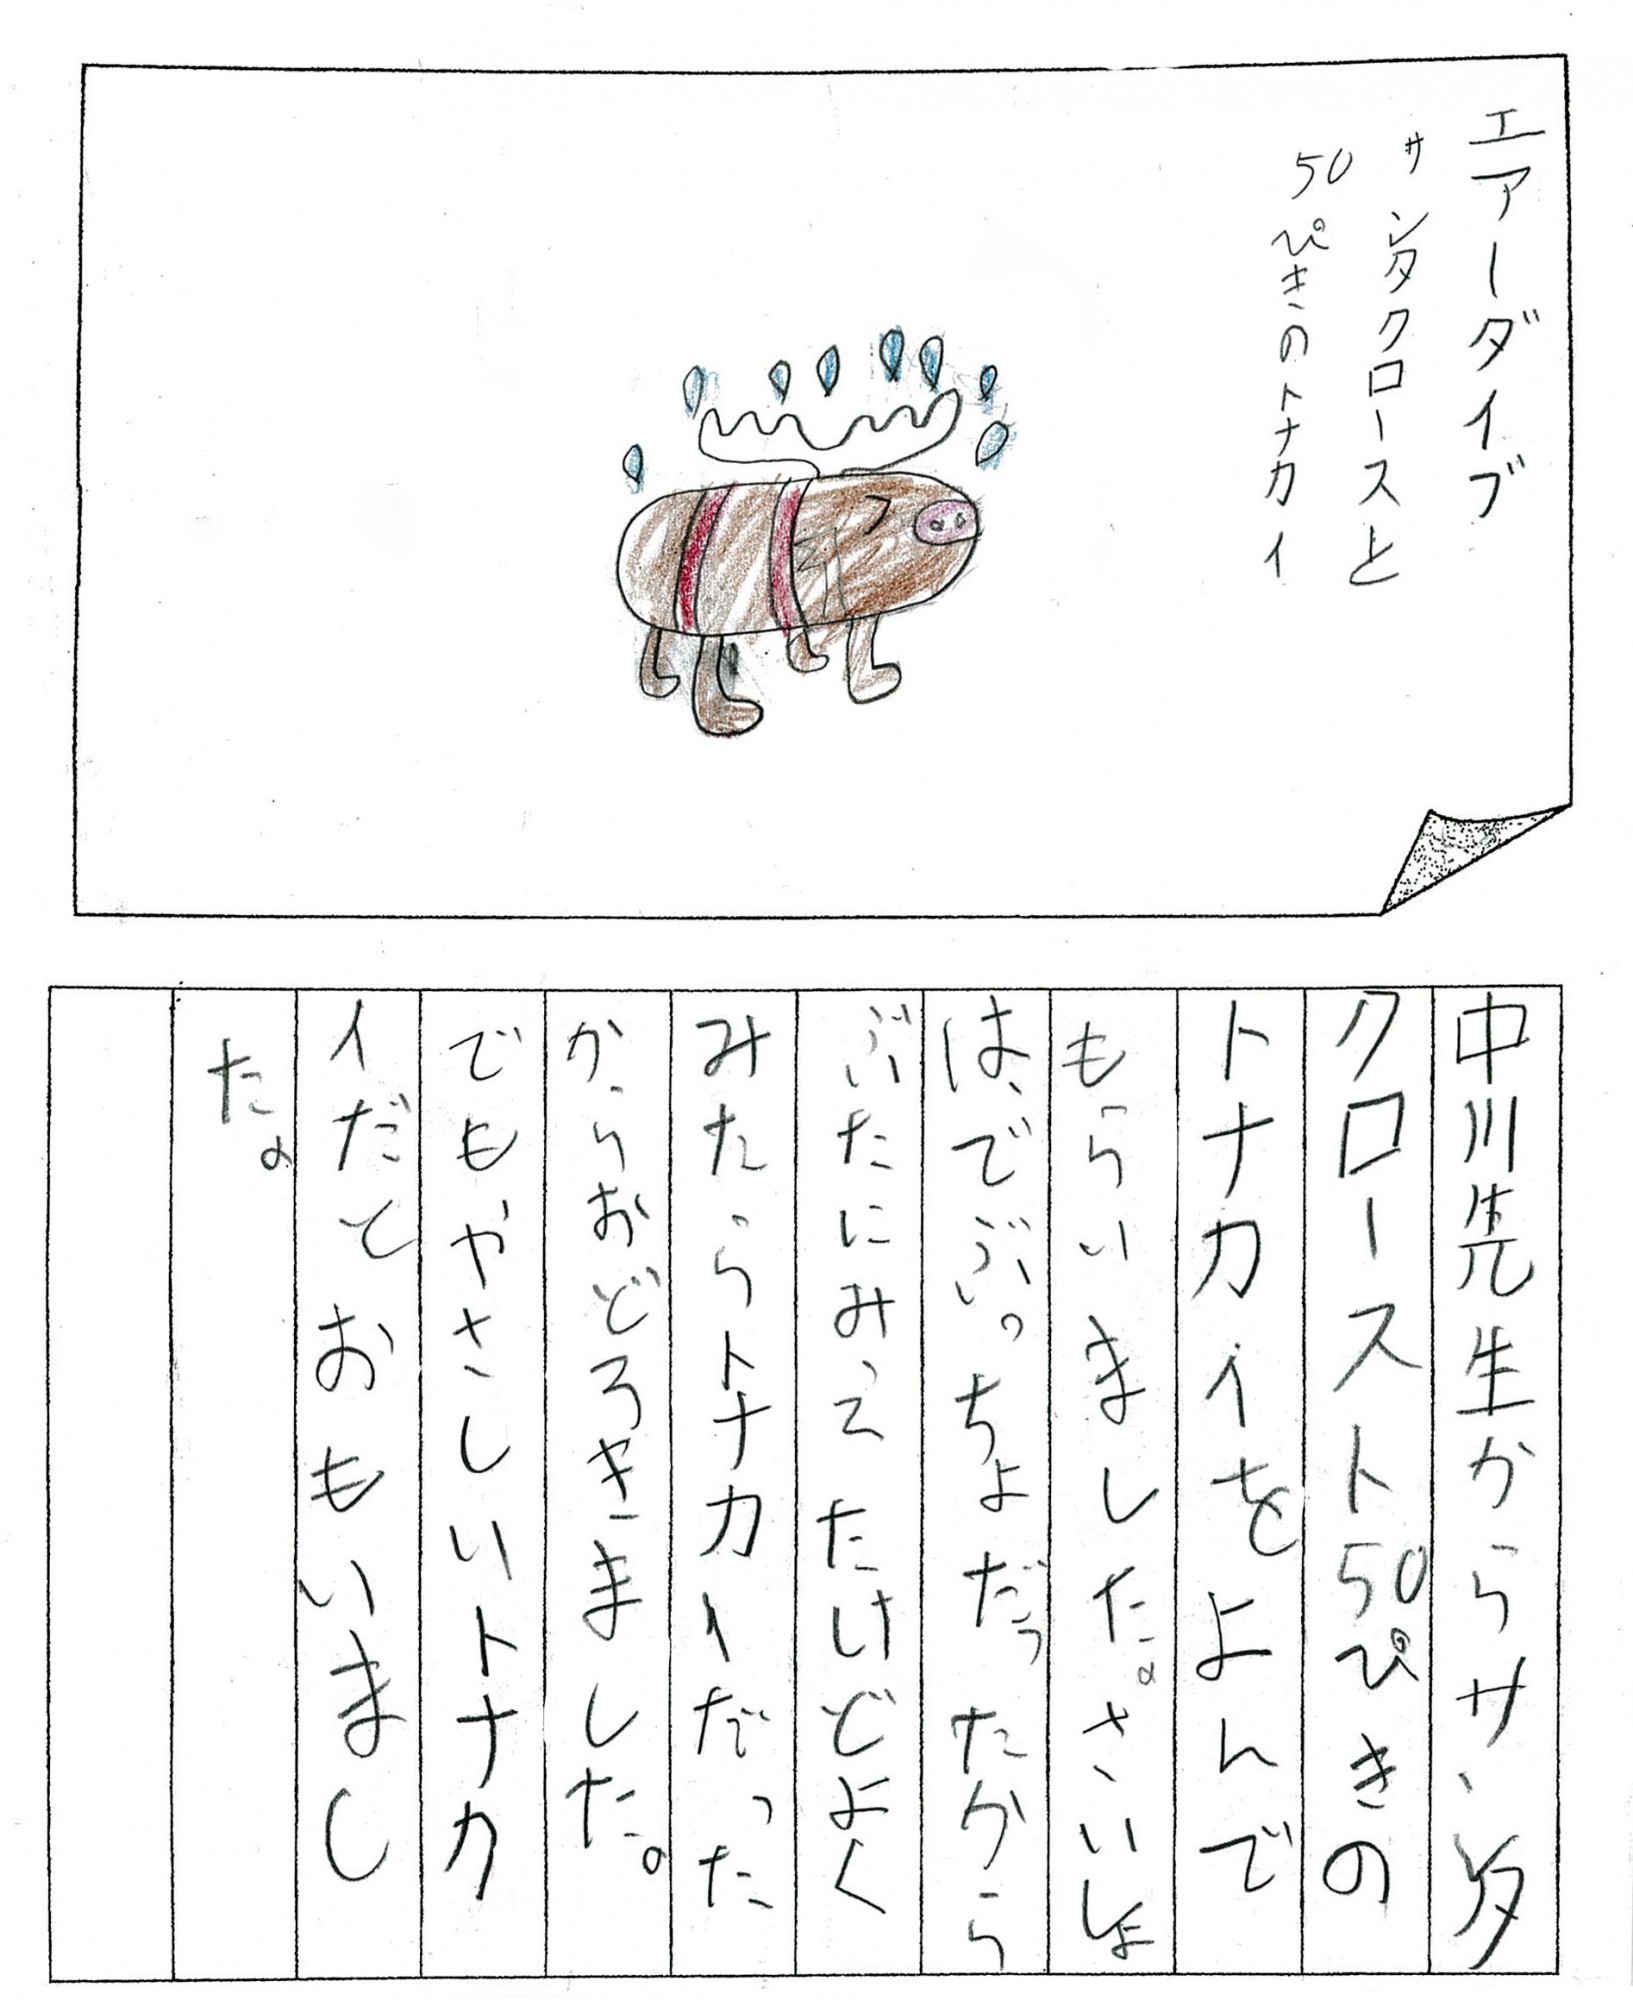 エアーダイブ
サンタクロースと
50ぴきのトナカイ
中川先生からサンタ
クロースト50ぴきの
トナカイをよんで
もらいました。さいしょ
は、でぶ。ちょだったから
ぶたにみってたけどよく
みたらトナカイだった
からおどろきました。
でもやさしいトナカ
イだとおもいまし
た。